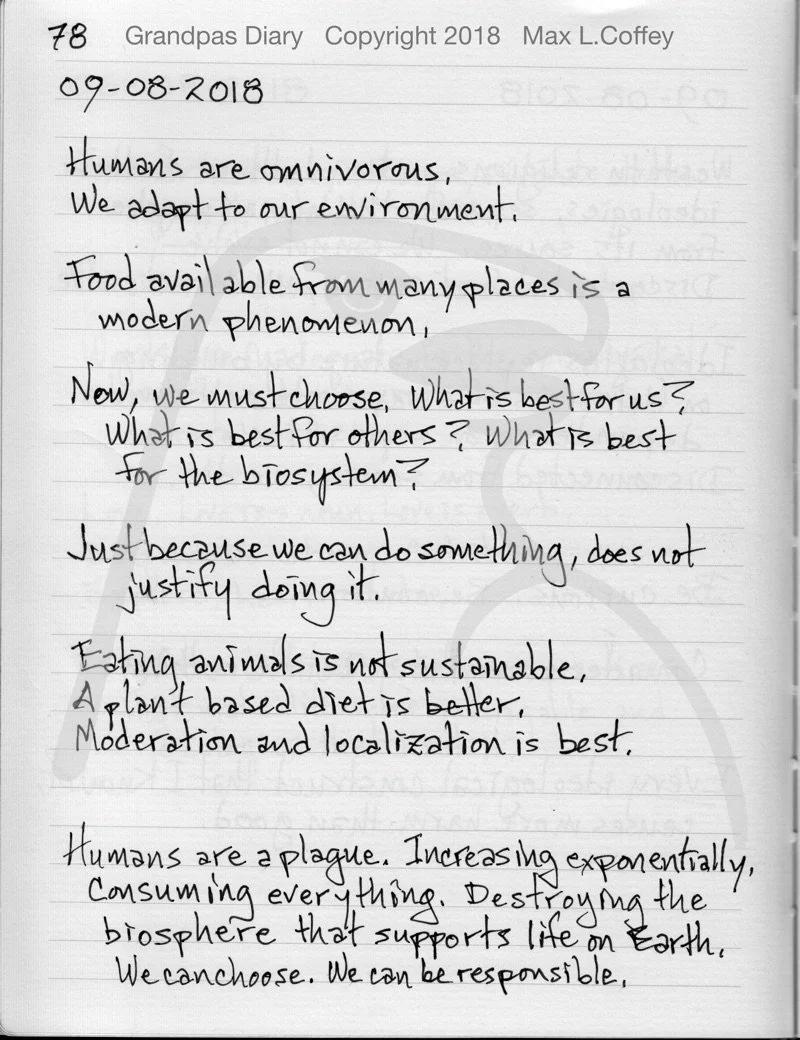 78 Grandpas Diary Copyright 2018 Max L.Coffey
09-08-2018
Humans are omnivorous,
We adapt to our environment.
Food available from many places is a
modern phenomenon,
Now, we must choose. What is best for us?
What is best for others? What is best
for the biosystem?
Just because we can do something, does not
justify doing it.
Eating animals is not sustainable,
A plant based diet is better,
Moderation and localization is best.
Humans are a plague. Increasing exponentially,
Consuming everything. Destroying the
biosphere that supports life on Earth.
We can choose. We can be responsible.